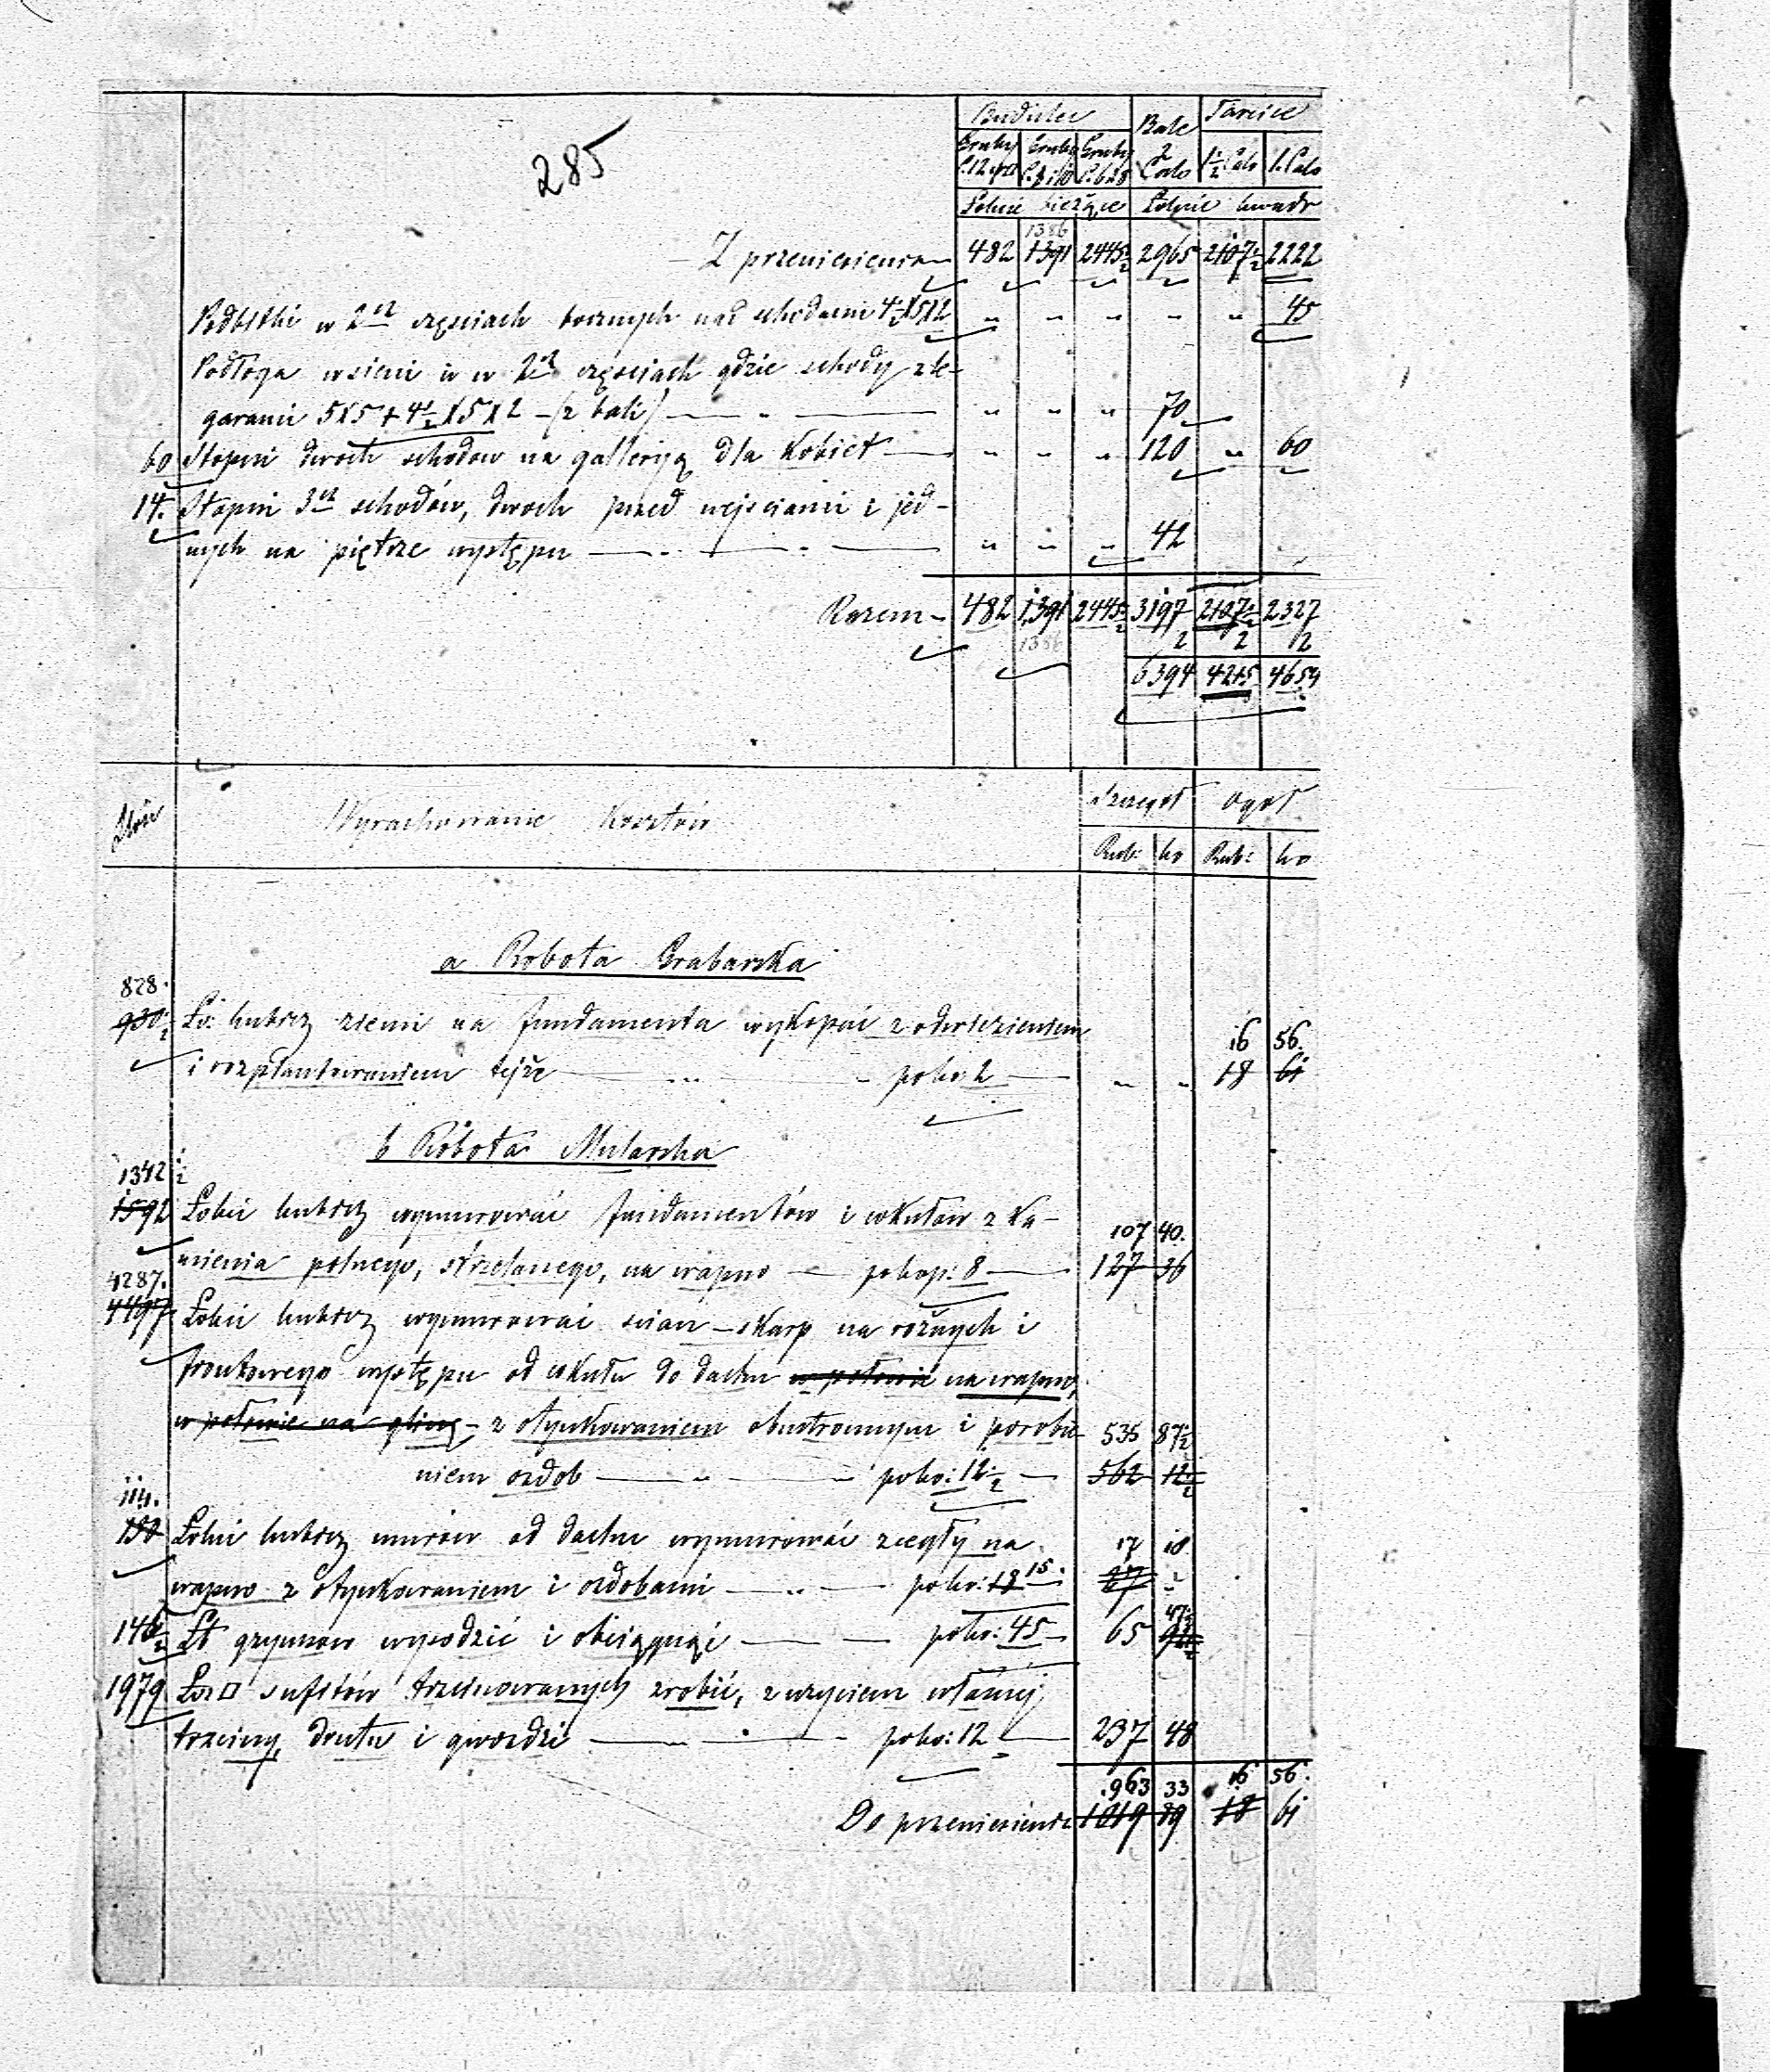 285
Budulec Bale Tarcice
Gruby Gruby Gruby 2 1½ Cal 1. Calo
Łokcie bieżące Łokcie kwadr
1386
Z przeniesienia 482 1391 2445½ 2965 2107½ 2222
Podbitki w 2ch częściach bocznych nad schodami 4½X5X2 " " " " " 45
Podłoga w sieni i w 2ch częściach gdzie schody z le-
garami 5X5+4½X5X2 – (z bali) " " " 70
60 Stopni dwoch schodow na galleryą dla Kobiet " " " 120 " 60
14. Stopni 3ch schodów, dwoch przed wejściami i jed-
nych na piętrze występu " " " 42
Razem 482 1391 2445½ 3197 2107½ 2327
1386 2 2 2
6394 4215 4654
Ilość Wyrachowanie Kosztów Szczegół Ogół
Rub: ko Rub: ko
a Robota Grabarska
828.
930½ Ło: kubicz ziemi na fundamenta wykopać z odwiezieniem 16 56.
i rozplantowaniem tejże po ko: 2 " " 18 61
b Robota Mularska
1342½
1592 Łokci kubicz wymurować fundamentów i cokułów z ka- 107 40.
mienia polnego, strzelanego, na wapno po kop: 8 127 36
4287.
4497 Łokci kubicz wymurować ścian – skarp narożnych i
frontowego występu od cokułu do dachu w połowie na wapno,
w połowie na glinę – z otynkowaniem obustronnym i porobie- 535 87½
niem ozdob po ko: 12½ 562 12½
114.
150 Łokci kubicz murów od dachu wymurować z cegły na 17 10
wapno z otynkowaniem i ozdobami po ko: 18 15. 27 "
146½ Ło gzymsow wywodzić i obciągnąć po ko: 45 65 92½
1979 Ło □ sufitów trzcinowanych zrobić, z użyciem własnej
trzciny, drutu i gwozdzi po ko: 12 237 48
963 33 16 56.
Do przeniesienia 1019 89 18 61